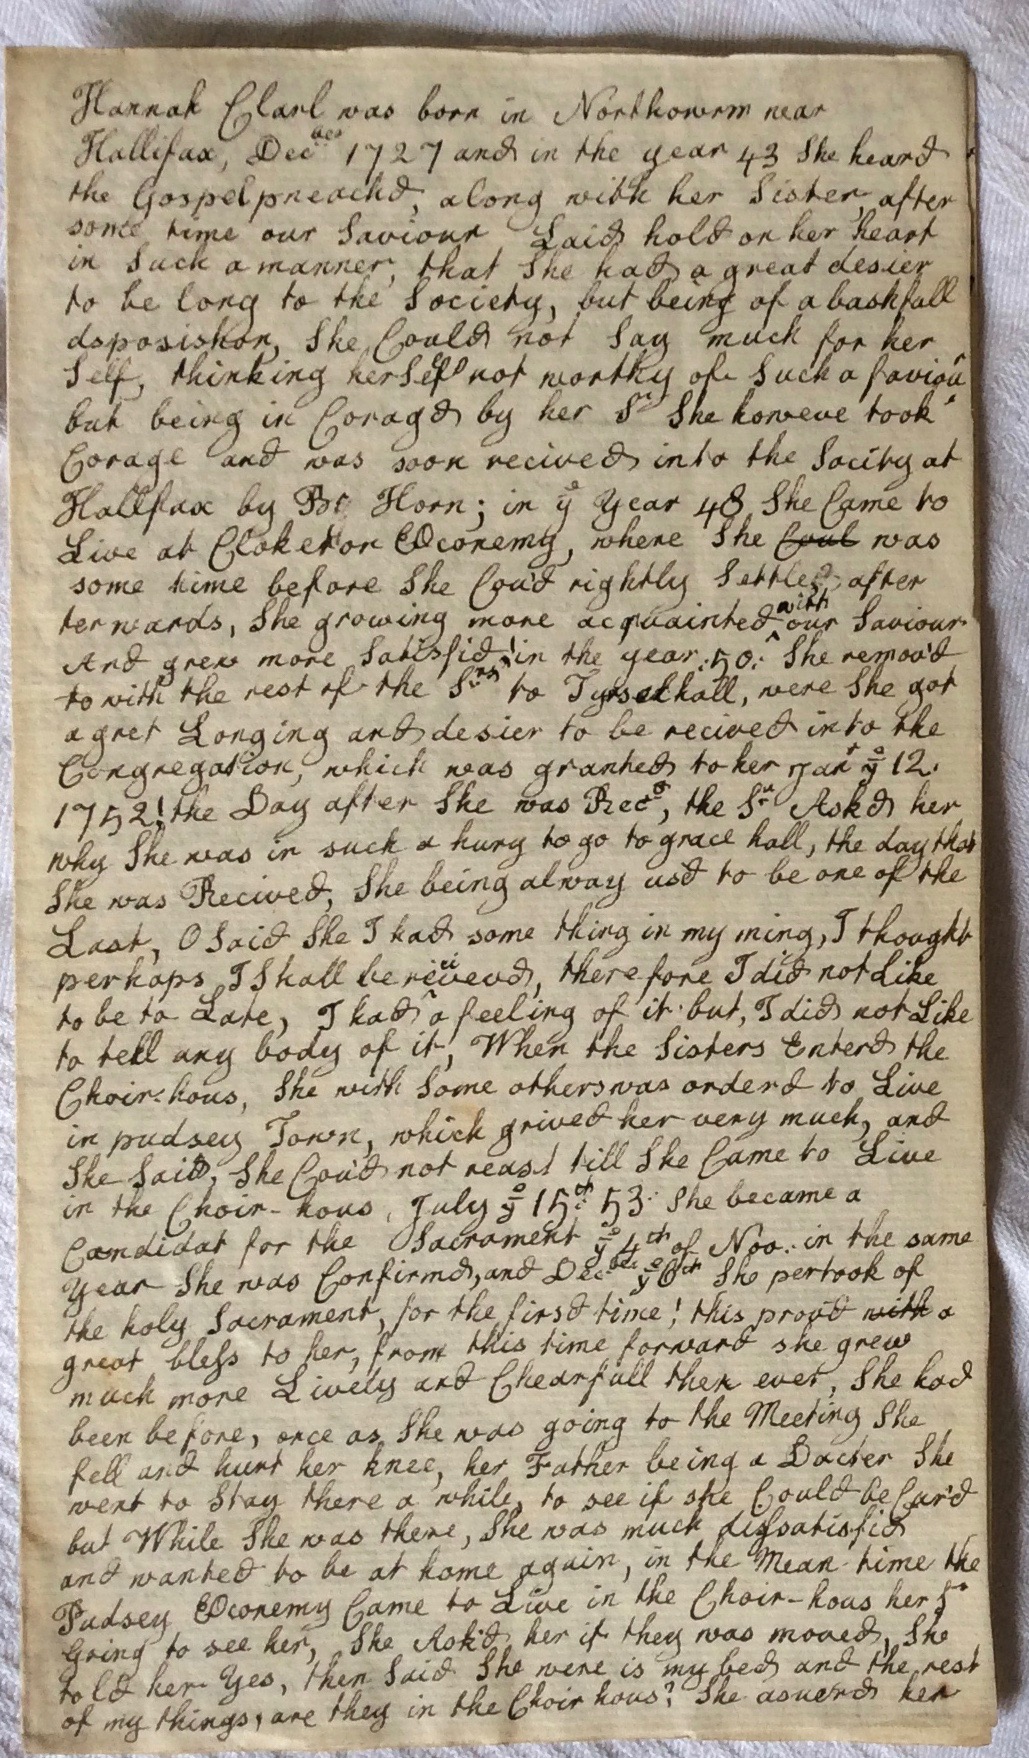 Hannah Clarl was born in Northowrm near
Hallifax, Decber 1727 and in the year 43 She heard
the Gospel preachd, along with her Sister, after
some time our Saviour Laid hold on her heart
in Such a manner, that She had a great desier
to be long to the Society, but being of a bashfull
dsposishon, She Could not Say much for her
Self, thinking herSelf not worthy of Such a faviou
but being in Coragd by her Sr She howeve took
Corage and was soon recived into the Socity at
Hallfax by Br Horn; in ye Year 48 She Came to
Live at Cloketon Œconemy, where She Coul was
some time before She Cou'd rightly Settled after
terwards, She growing more acquainted with our Saviour
And grew more Satisfid! in the year :50: She remov'd
to with the rest of the Srs to Tyrselhall, were She got
a gret Longing and desier to be recived into the
Congregation, which was granted to her Jan ye 12.
1752! the Day after She was Recd, the Sr Askd her
why She was in such a hury to go to grace hall, the day that
She was Recived, She being alway usd to be one of the
Last, O Said She I had some thing in my ming, I thought
perhaps I Shall be reciveud, therefore I did not Like
to be to Late, I had a feeling of it but, I did not Like
to tell any body of it, When the Sisters Enterd the
Choir-hous, She with Some others was orderd to Live
in pudsey Town, which grived her very much, and
She Said, She Cou'd not reast till She Came to Live
in the Choir-hous, July ye 15th 53: She became a
Candidat for the Sacrament ye 4th of Nov: in the same
Year She was Confirmd, and Decber ye 6th She pertook of
the holy Sacrament, for the first time! this prov'd with a
great bless to her, from this time forward she grew
much more Lively and Chearfull then ever, She had
been before, once as She was going to the Meeting She
fell and hurt her knee, her Father being a Docter She
went to Stay there a while, to see if she Could be Cur'd
but While She was there, She was much dissatisfid
and wanted to be at home again, in the Mean time the
Pudsey Œconemy Came to Live in the Choir-hous her Sr
Going to see her, She Ask'd her if they was moved, She
told her Yes, then Said She were is my bed and the rest
of my things, are they in the Choir hous? She asuerd her